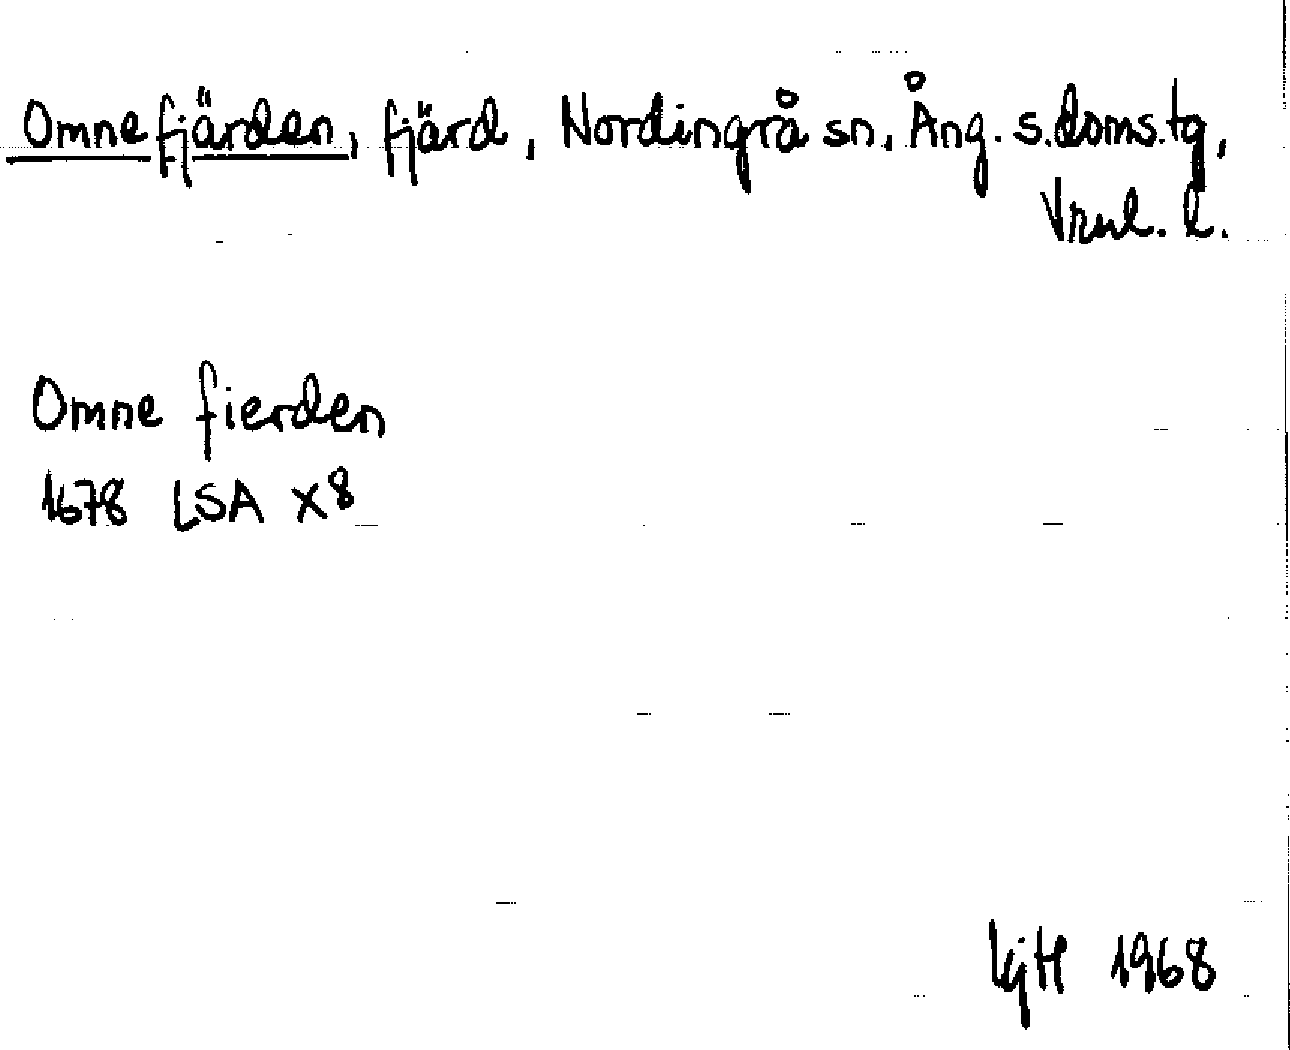 Omnefjärden, fjärd, Nordingrå sn, Ång. s. doms. tg,
Vrnl. l.
Omne fierden
1678 LSA X8
1968